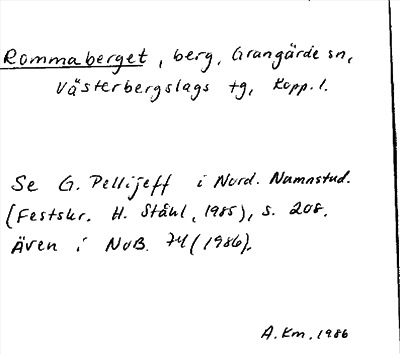 Rommaberget, berg, Grangärde sn,
Västerbergslags tg, Kopp. l.
Se G. Pellijeff i Nord. Namnstud.
(Festskr. H. Ståhl, 1985), s. 208.
Även i NoB. 74 (1986).
A.Km. 1986